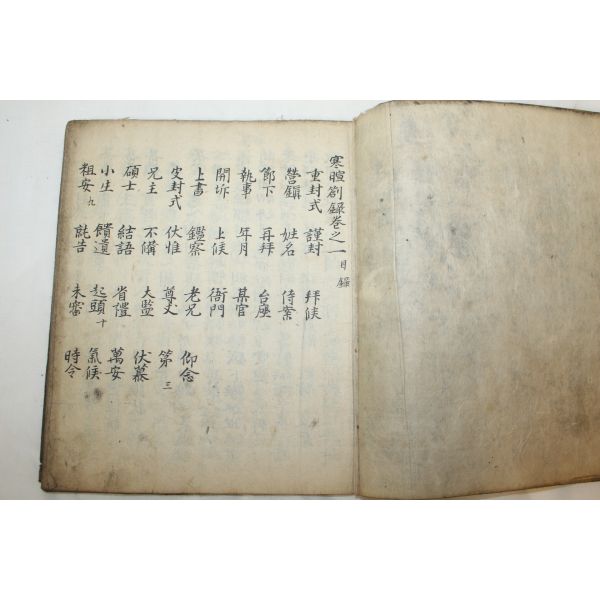 寒暄箚錄卷之一 目錄
重封式 謹封 拜候
營鎭 姓名 侍案
節下 再拜 台座
執事 年月 某官
開坼 上候 衙門
上書 鑑察 老兄 仰念
封式 伏惟 尊丈 第三
兄主 不備 大監 伏慕
碩士 結語 省禮 萬安
小生 饋遺 起頭十 氣候
粗安九 告 未審 時令